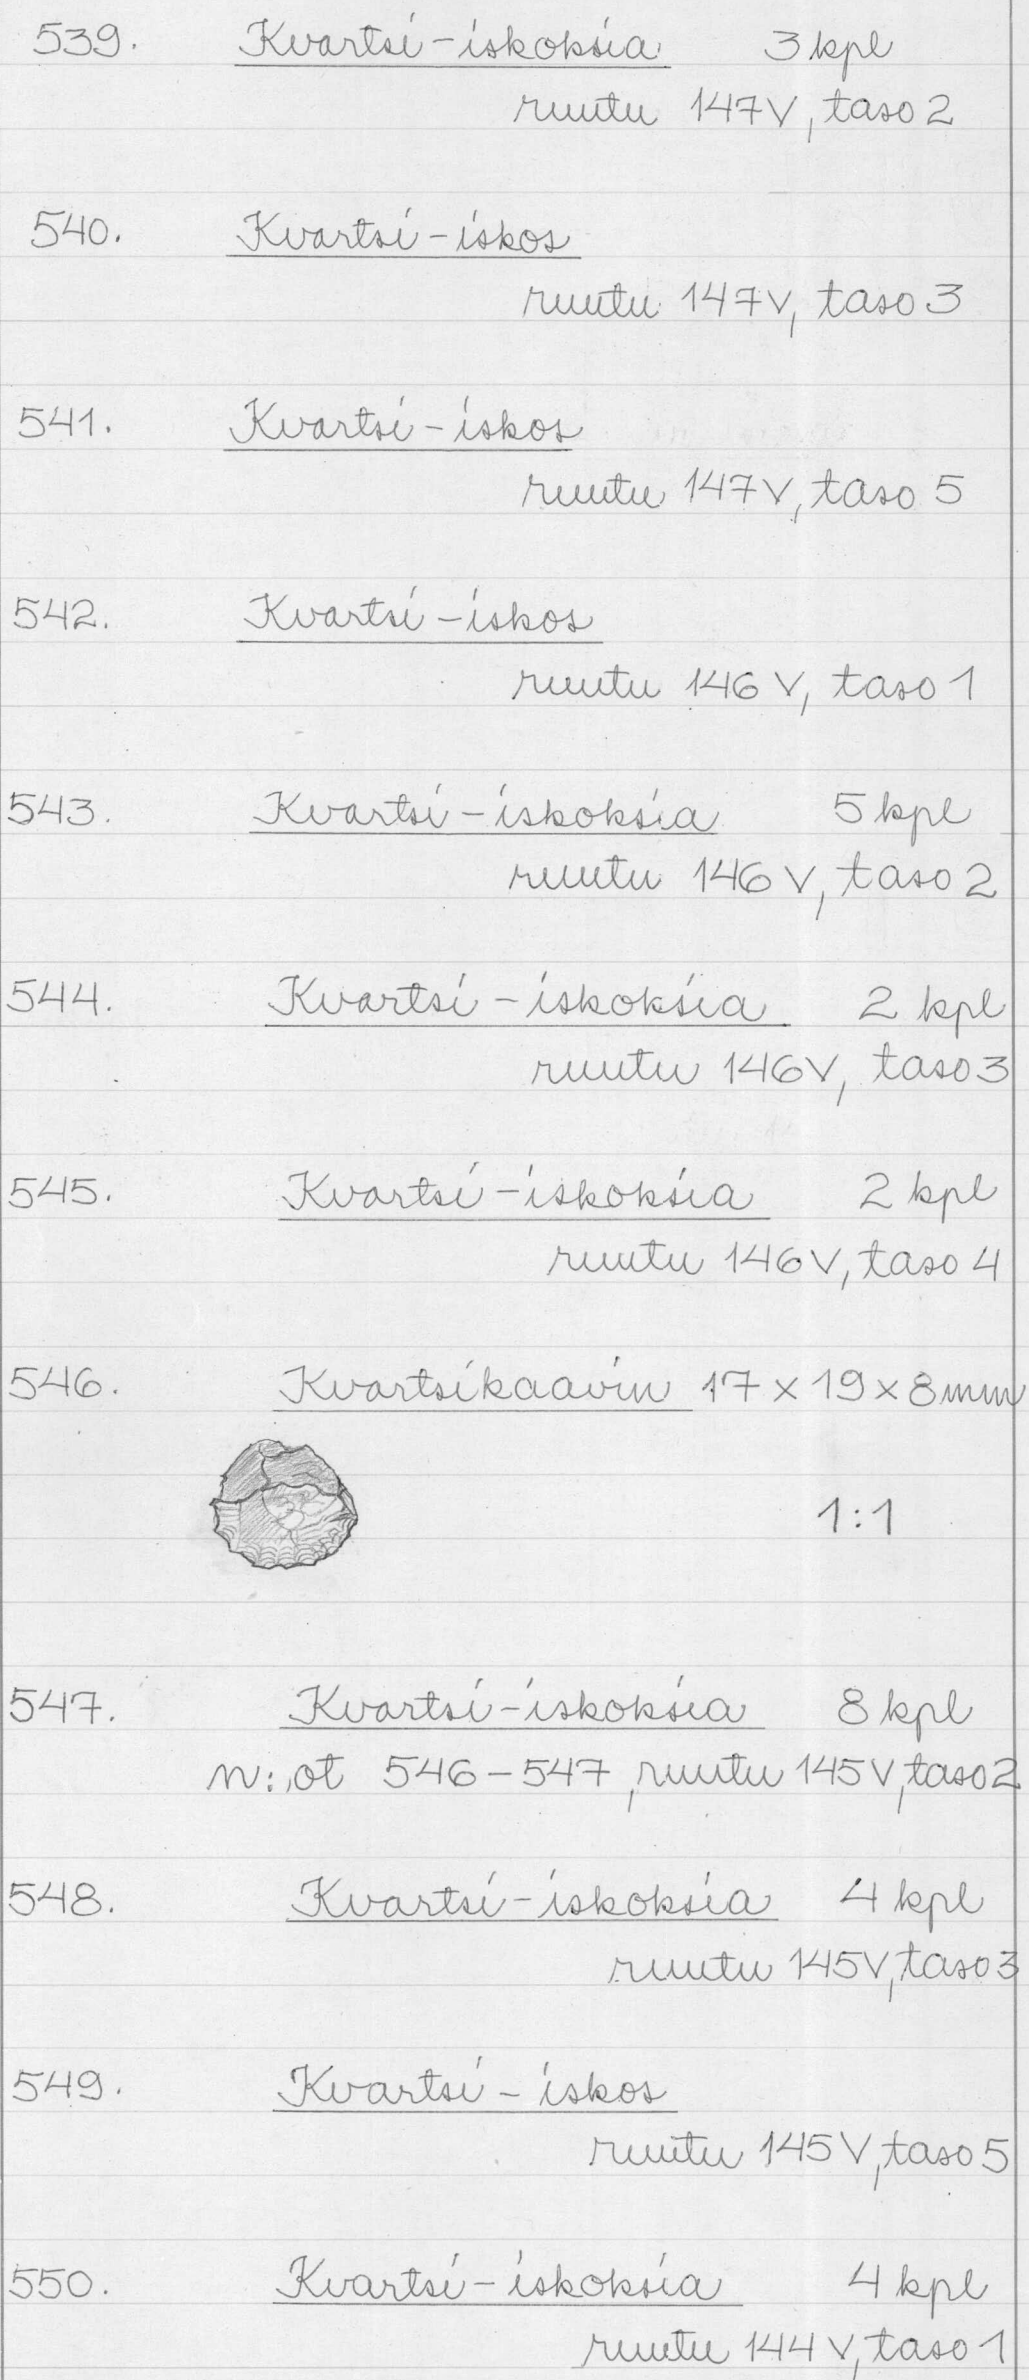 539. Kvartsi-iskoksia 3 kpl
ruutu 147V, taso 2
540. Kvartsi-iskos
ruutu 147V, taso 3
541. Kvartsi-iskos
ruutu 147V, taso 5
542. Kvartsi-iskos
ruutu 146V, taso 1
543. Kvartsi-iskoksia 5 kpl
ruutu 146V, taso 2
544. Kvartsi-iskoksia 2 kpl
ruutu 146V, taso 3
545. Kvartsi-iskoksia 2 kpl
ruutu 146V, taso 4
546. Kvartsikaavin 17 x 19 x 8mm
1:1
547. Kvartsi-iskoksia 8 kpl
n:ot 546-547, ruutu 145V, taso 2
548. Kvartsi-iskoksia 4 kpl
ruutu 145V, taso 3
549. Kvartsi-iskos
ruutu 145V, taso 5
550. Kvartsi-iskoksia 4 kpl
ruutu 144V, taso 1